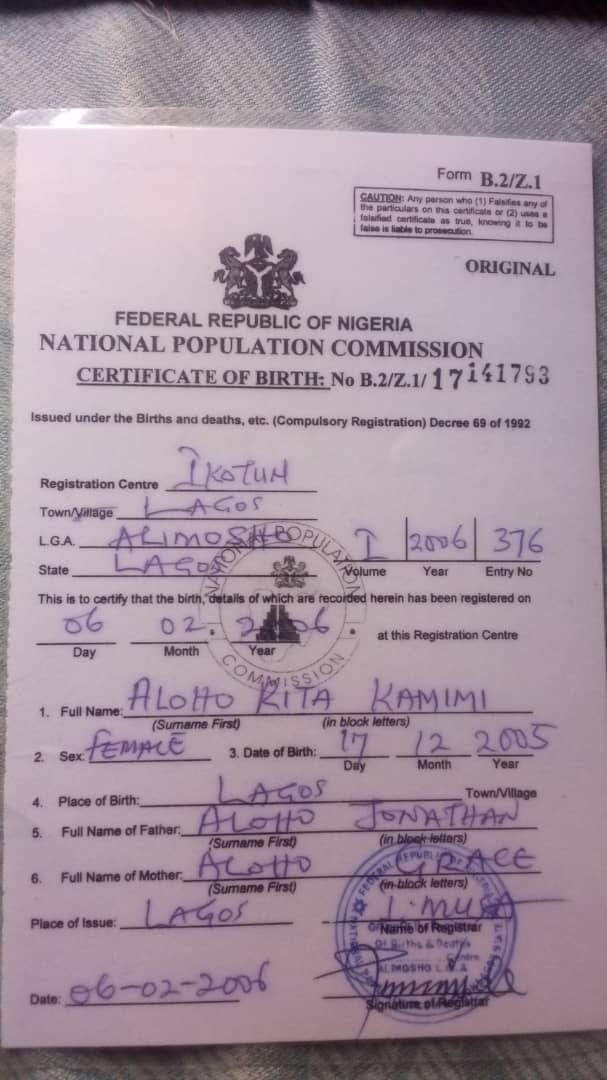 Form B.2/Z.1
CAUTION: Any person who (1) Falsifies any of
the particulars on this certificate or (2) uses a
falsified certificate as true, knowing it to be
false is liable to prosecution.
ORIGINAL
FEDERAL REPUBLIC OF NIGERIA
NATIONAL POPULATION COMMISSION
CERTIFICATE OF BIRTH: No B.2/Z.1/ 17141793
Issued under the Births and deaths, etc. (Compulsory Registration) Decree 69 of 1992
Registration Centre IKOTUN
Town/Village LAGOS
L.G.A. ALIMOSHO
State LAGOS
I 2006 376
Volume Year Entry No
NATIONAL POPULATION COMMISSION
This is to certify that the birth, details of which are recorded herein has been registered on
06 02 2006 at this Registration Centre
Day Month Year
1. Full Name: ALOHO RITA KAMIMI
(Surname First) (in block letters)
2. Sex: FEMALE 3. Date of Birth: 17 12 2005
Day Month Year
4. Place of Birth: LAGOS Town/Village
5. Full Name of Father: ALOHO JONATHAN
(Surname First) (in block letters)
6. Full Name of Mother: ALOHO GRACE
(Surname First) (in block letters)
Place of Issue: LAGOS I. MUSA
Name of Registrar
FEDERAL REPUBLIC OF
Of Births & Deaths
Centre
ALIMOSHO L.G.A
Date: 06-02-2006
Signature of Registrar